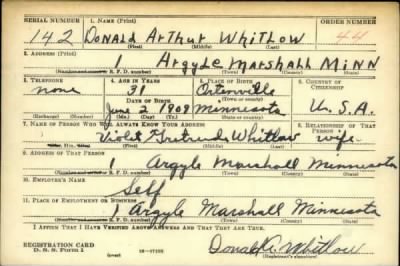 SERIAL NUMBER 1. NAME (Print) ORDER NUMBER
142 Donald Arthur Whitlow 44
(First) (Middle) (Last)
2. ADDRESS (Print)
1 Argyle Marshall Minn
3. TELEPHONE 4. AGE IN YEARS 5. PLACE OF BIRTH 6. COUNTRY OF CITIZENSHIP
none 31 Ortonville
DATE OF BIRTH (Town or county)
June 2 1909 Minnesota U.S.A.
(Exchange) (Number) (Mo.) (Day) (Yr.) (State or country)
7. NAME OF PERSON WHO WILL ALWAYS KNOW YOUR ADDRESS 8. RELATIONSHIP OF THAT PERSON
Violet Gertrude Whitlow wife
(First) (Middle) (Last)
9. ADDRESS OF THAT PERSON
1 Argyle Marshall Minnesota
10. EMPLOYER'S NAME
Self
11. PLACE OF EMPLOYMENT OR BUSINESS
1 Argyle Marshall Minnesota
I AFFIRM THAT I HAVE VERIFIED ABOVE ANSWERS AND THAT THEY ARE TRUE.
REGISTRATION CARD
D. S. S. Form 1 (over) Donald A. Whitlow
(Registrant's signature)